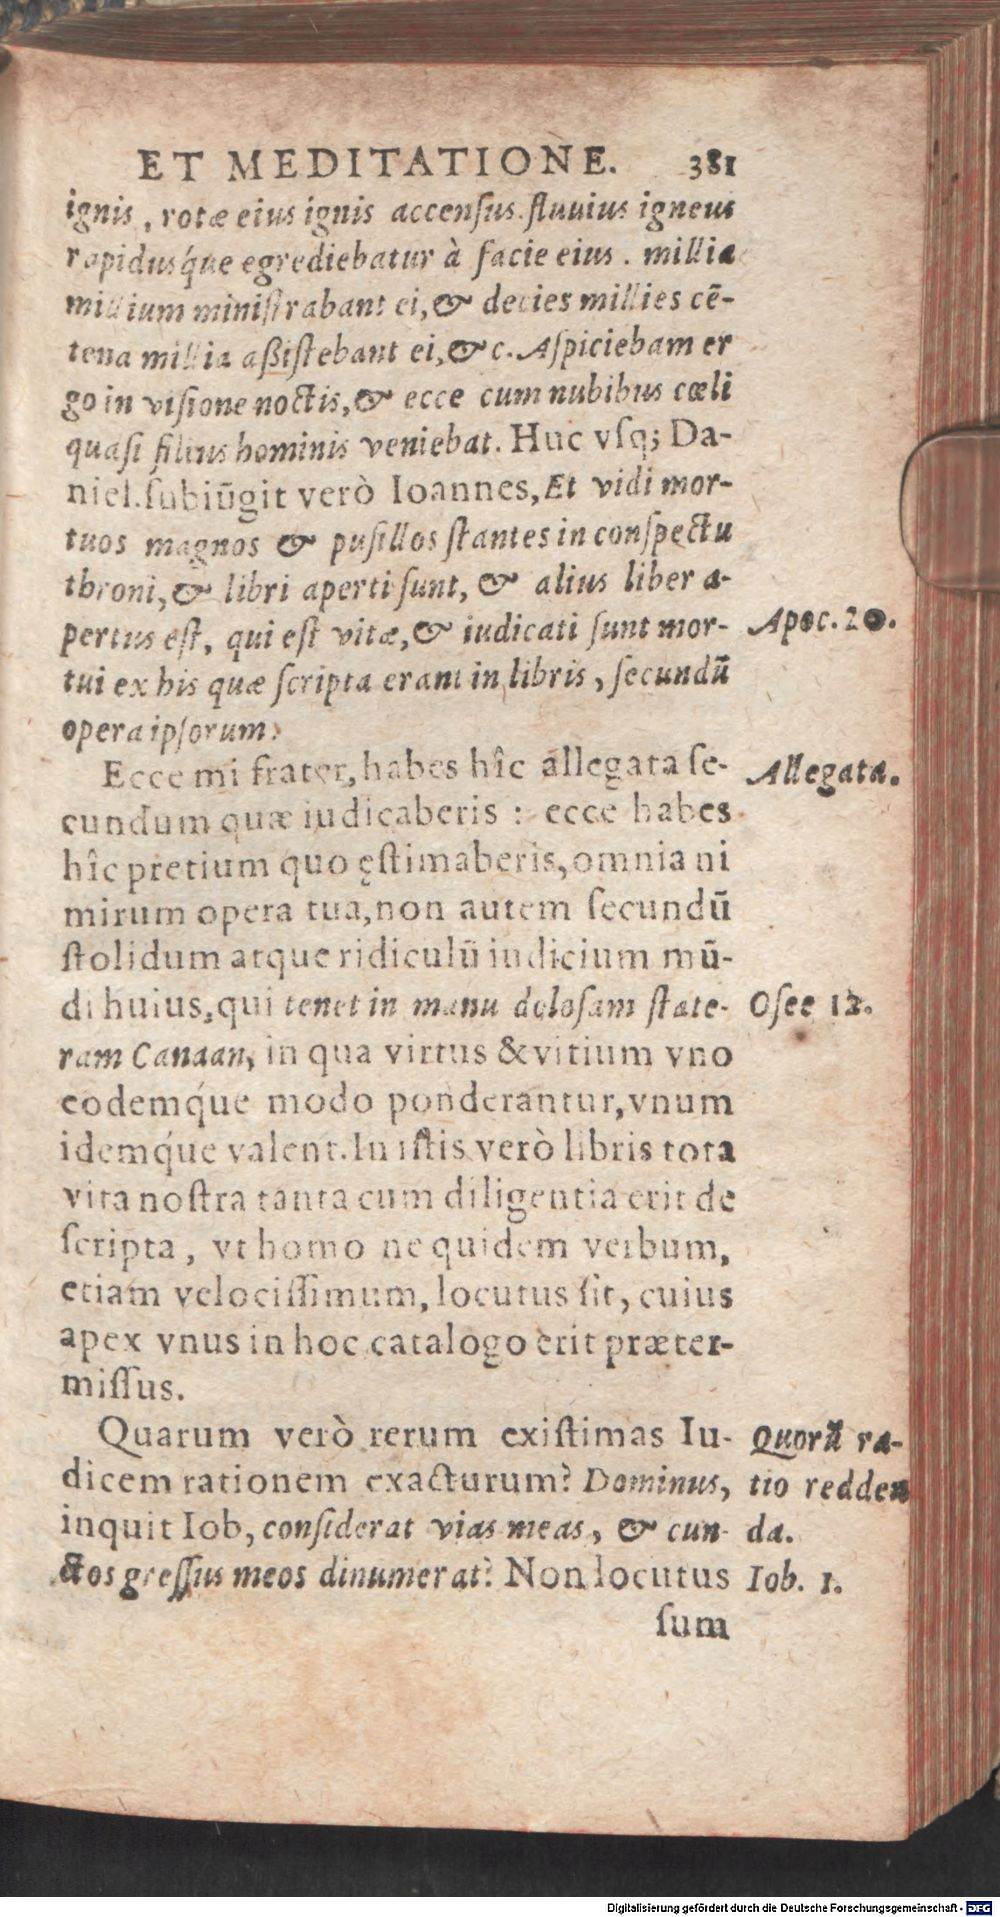 ET MEDITATIONE. 381
ignis, rotæ eius ignis accensus. fluuius igneus
rapidusq́ue egrediebatur à facie eius. millia
millium ministrabant ei, & decies millies cē-
tena millia aßistebant ei, &c. Aspiciebam er
go in visione noctis, & ecce cum nubibus cœli
quasi filius hominis veniebat. Huc vsq; Da-
niel. subiūgit verò Ioannes, Et vidi mor-
tuos magnos & pusillos stantes in conspectu
throni, & libri aperti sunt, & alius liber a-
pertus est, qui est vitæ, & iudicati sunt mor-
Apoc. 20.
tui ex his quæ scripta erant in libris, secundū
opera ipsorum.
Ecce mi frater, habes hîc allegata se-
Allegata.
cundum quæ iudicaberis : ecce habes
hîc pretium quo ęstimaberis, omnia ni
mirum opera tua, non autem secundū
stolidum atque ridiculū iudicium mū-
di huius, qui tenet in manu dolosam state-
Osee 12.
ram Canaan, in qua virtus & vitium vno
eodemq́ue modo ponderantur, vnum
idemq́ue valent. In istis verò libris tota
vita nostra tanta cum diligentia erit de
scripta, vt homo ne quidem verbum,
etiam velocissimum, locutus sit, cuius
apex vnus in hoc catalogo erit præter-
missus.
Quarum verò rerum existimas Iu-
Quorū ra-
dicem rationem exacturum? Dominus,
tio redden
inquit Iob, considerat vias meas, & cun-
da.
ctos gressus meos dinumerat? Non locutus
Iob. 1.
sum
Digitalisierung gefördert durch die Deutsche Forschungsgemeinschaft - DFG